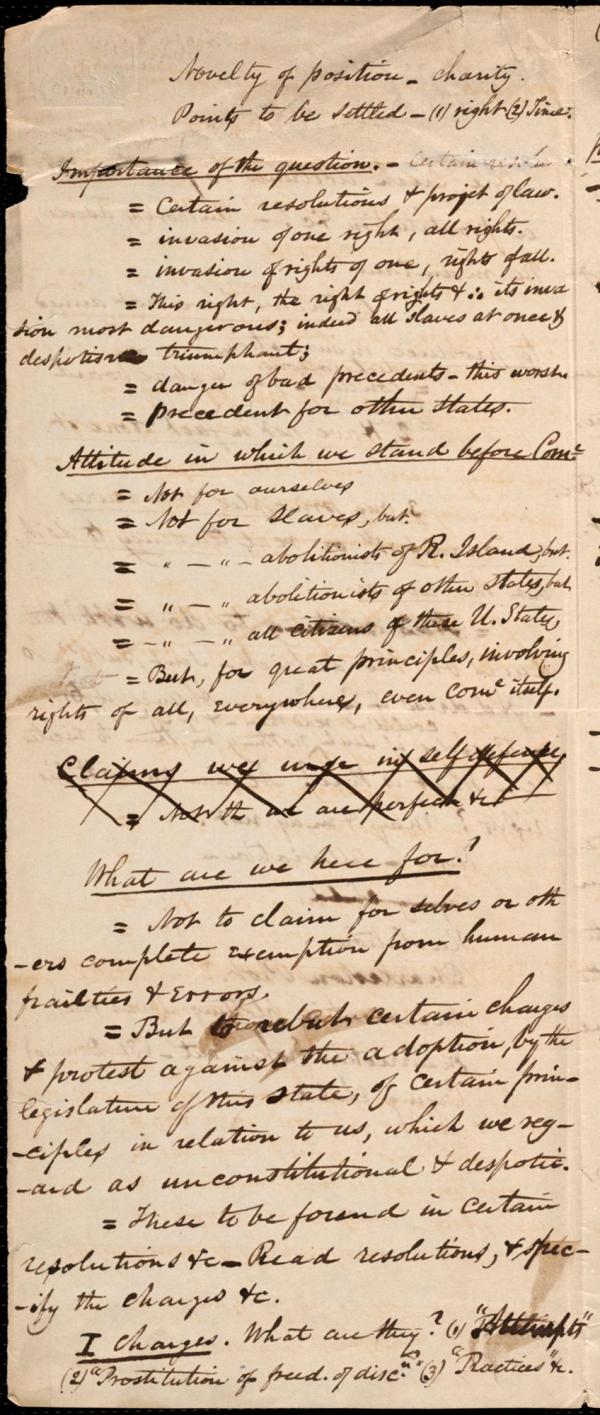 Novelty of position - charity.
Points to be settled - (1) right (2) Time.
Importance of the question. - Certain
= Certain resolutions & projet of law.
= invasion of one right, all rights.
= invasion of rights of one, rights of all.
= This right, the right of rights & ∴ its inva
sion most dangerous; indeed all slaves at once &
despotism triumphant;
= danger of bad precedents - this worst.
= precedent for other States.
Attitude in which we stand before Come
= Not for ourselves
= Not for slaves, but.
= " — " — abolitionists of R. Island, but.
= " — " abolitionists of other States, but
= - " — " all citizens of these U. States,
= But, for great principles, involving
rights of all, everywhere, even Come itself.
Claims we urge in self defence
= Not th we are perfect &c
What are we here for?
= Not to claim for selves or oth
-ers complete exemption from human
frailties & errors.
= But to rebut certain charges
& protest against the adoption, by the
legislature of this State, of certain prin-
-ciples in relation to us, which we reg-
-ard as unconstitutional & despotic.
= These to be found in certain
resolutions &c - Read resolutions, & spec-
-ify the charges &c.
I charges. What are they? (1) "Attempts"
(2) "Prostitution of freed. of discn" (3) "Practices" &c.